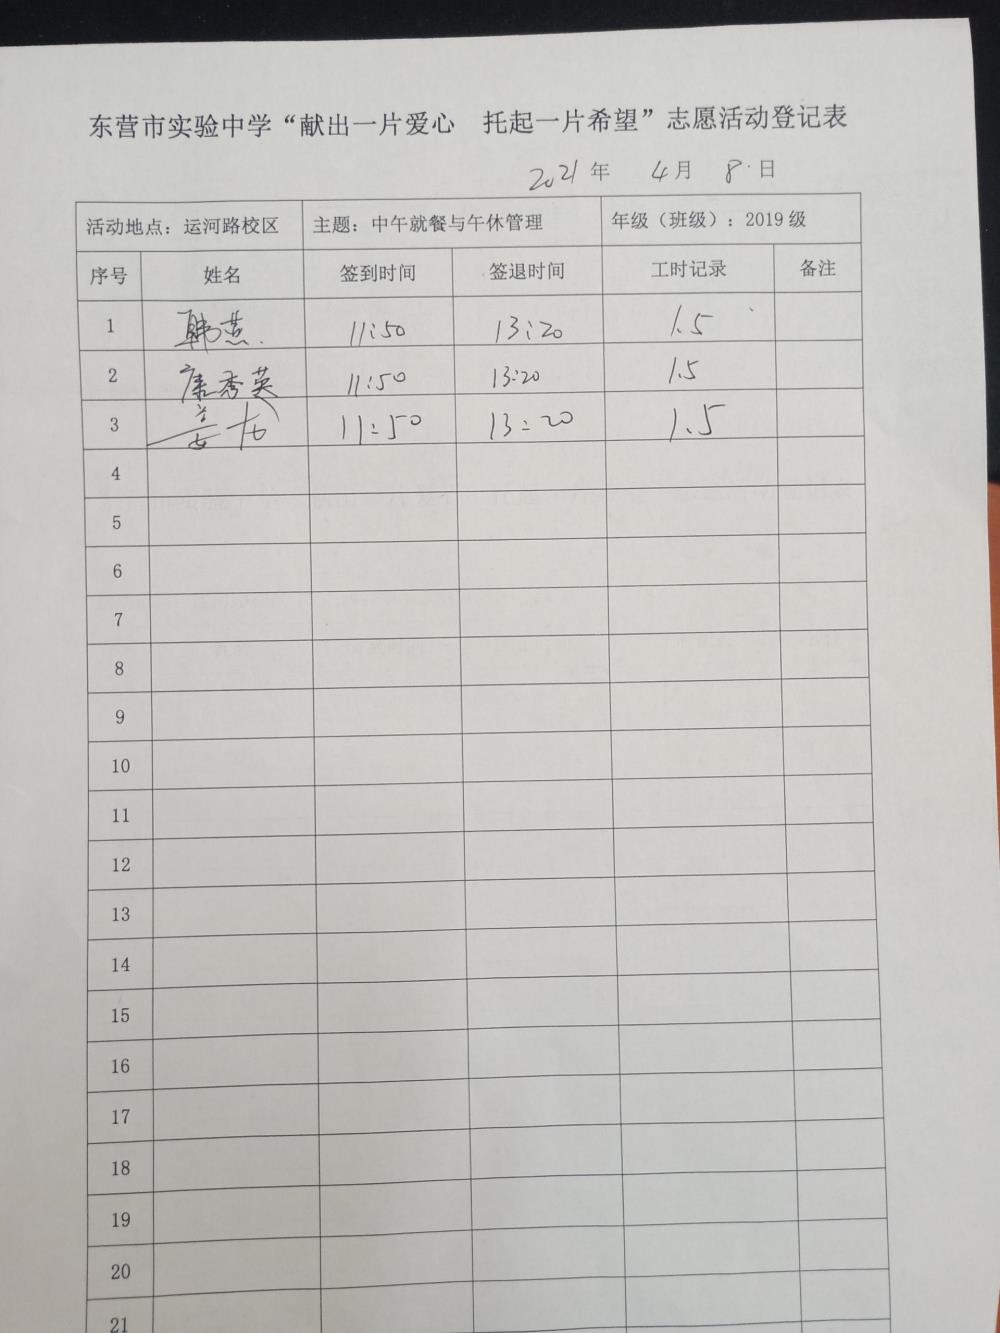 东营市实验中学“献出一片爱心 托起一片希望”志愿活动登记表
2021年 4月 8日
活动地点：运河路校区 主题：中午就餐与午休管理 年级（班级）：2019级
序号 姓名 签到时间 签退时间 工时记录 备注
1 韩燕 11:50 13:20 1.5
2 康秀英 11:50 13:20 1.5
3 11:50 13:20 1.5
4
5
6
7
8
9
10
11
12
13
14
15
16
17
18
19
20
21